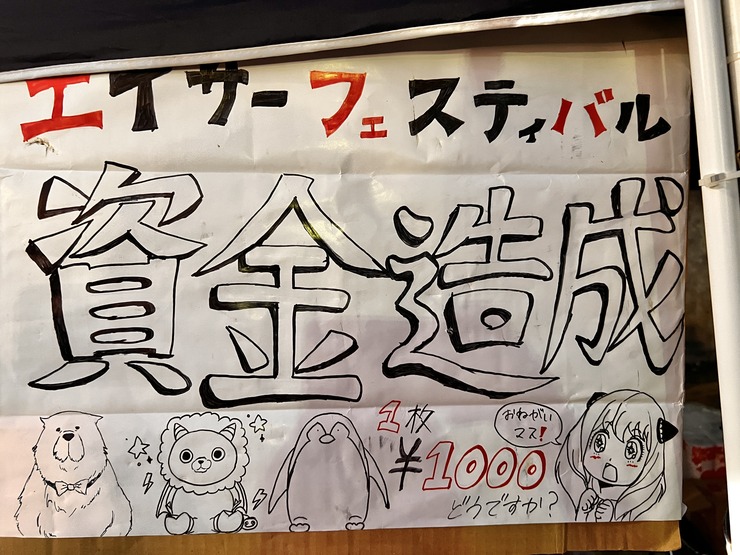 エイサーフェスティバル
資金造成
1枚
¥1000
どうですか?
おねがい
マス!